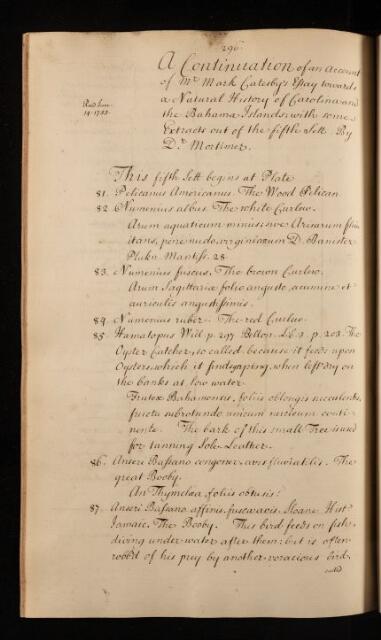 296
A Continuation of an Account
of Mr Mark Catesby's Essay towards
a Natural History of Carolina and
the Bahama Islands: with some
Extracts out of the fifth Sett. By
Dr Mortimer.
Read June
This fifth Sett begins at Plate
81. Pelicanus Americanus. The Wood Pelican
82. Numenius albus. The white Curlew.
Arum aquaticum minus; sive Arisarum flui
tans, pene nudo, virginianum D. Banister
Pluk. Mantiss. 28
83. Numenius fuscus. The brown Curlew.
Arum Sagittariæ folio angusto, acumine et
auriculis angustissimis.
84. Numenius ruber. The red Curlew.
85. Hæmatopus Will. p. 297 Bellon. Lib. 3. p. 203. The
Oyster Catcher, so called, because it feeds upon
Oysters, which it finds gaping, when left dry on
the banks at low water.
Frutex Bahamensis, foliis oblongis succulentis,
fructu subrotundo unicum nucleum conti-
nente. The bark of this small Tree is used
for tanning Sole Leather.
86. Anseri Bassano congener, avis fluviatilis. The
great Booby.
An Thymelæa foliis obtusis?
87. Anseri Bassano affinis fusca avis. Sloane Hist
Jamaic. The Booby. This bird feeds on fish,
diving under water after them: but is often
robb'd of his prey by another voracious bird,